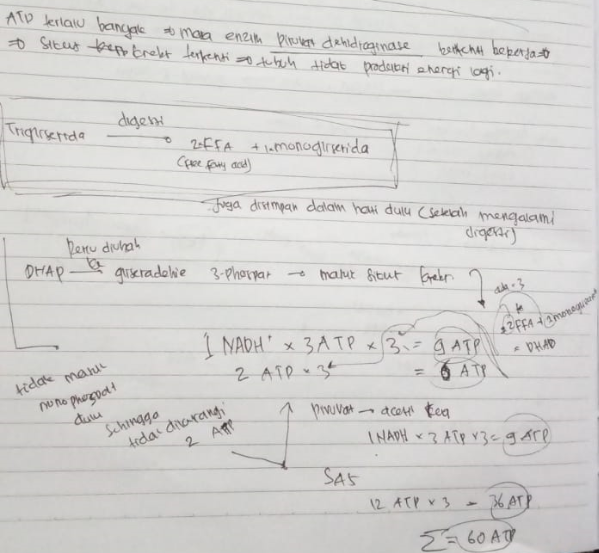 ATP terlalu banyak ⇒ maka enzim piruvat dehidroginase berhenti bekerja ⇒
⇒ Siklus Krebs terhenti ⇒ tubuh tidak produksi energi lagi.
Trigliserida digesti → 2 FFA + 1 monogliserida
(free fatty acid)
Juga disimpan dalam hati dulu (setelah mengalami
digesti)
Perlu diubah
DHAP → gliseradehie 3-phospat → masuk Siklus Krebs.
ada 3
2FFA +
= DHAP
1 NADH⁺ × 3 ATP × 3 = 9 ATP
2 ATP × 3 = 6 ATP
tidak masuk
monophospat
dulu
Sehingga
tidak dikurangi
2 ATP
piruvat → acetil
1 NADH × 3 ATP × 3 = 9 ATP
SAS
12 ATP × 3 = 36 ATP
Σ = 60 ATP